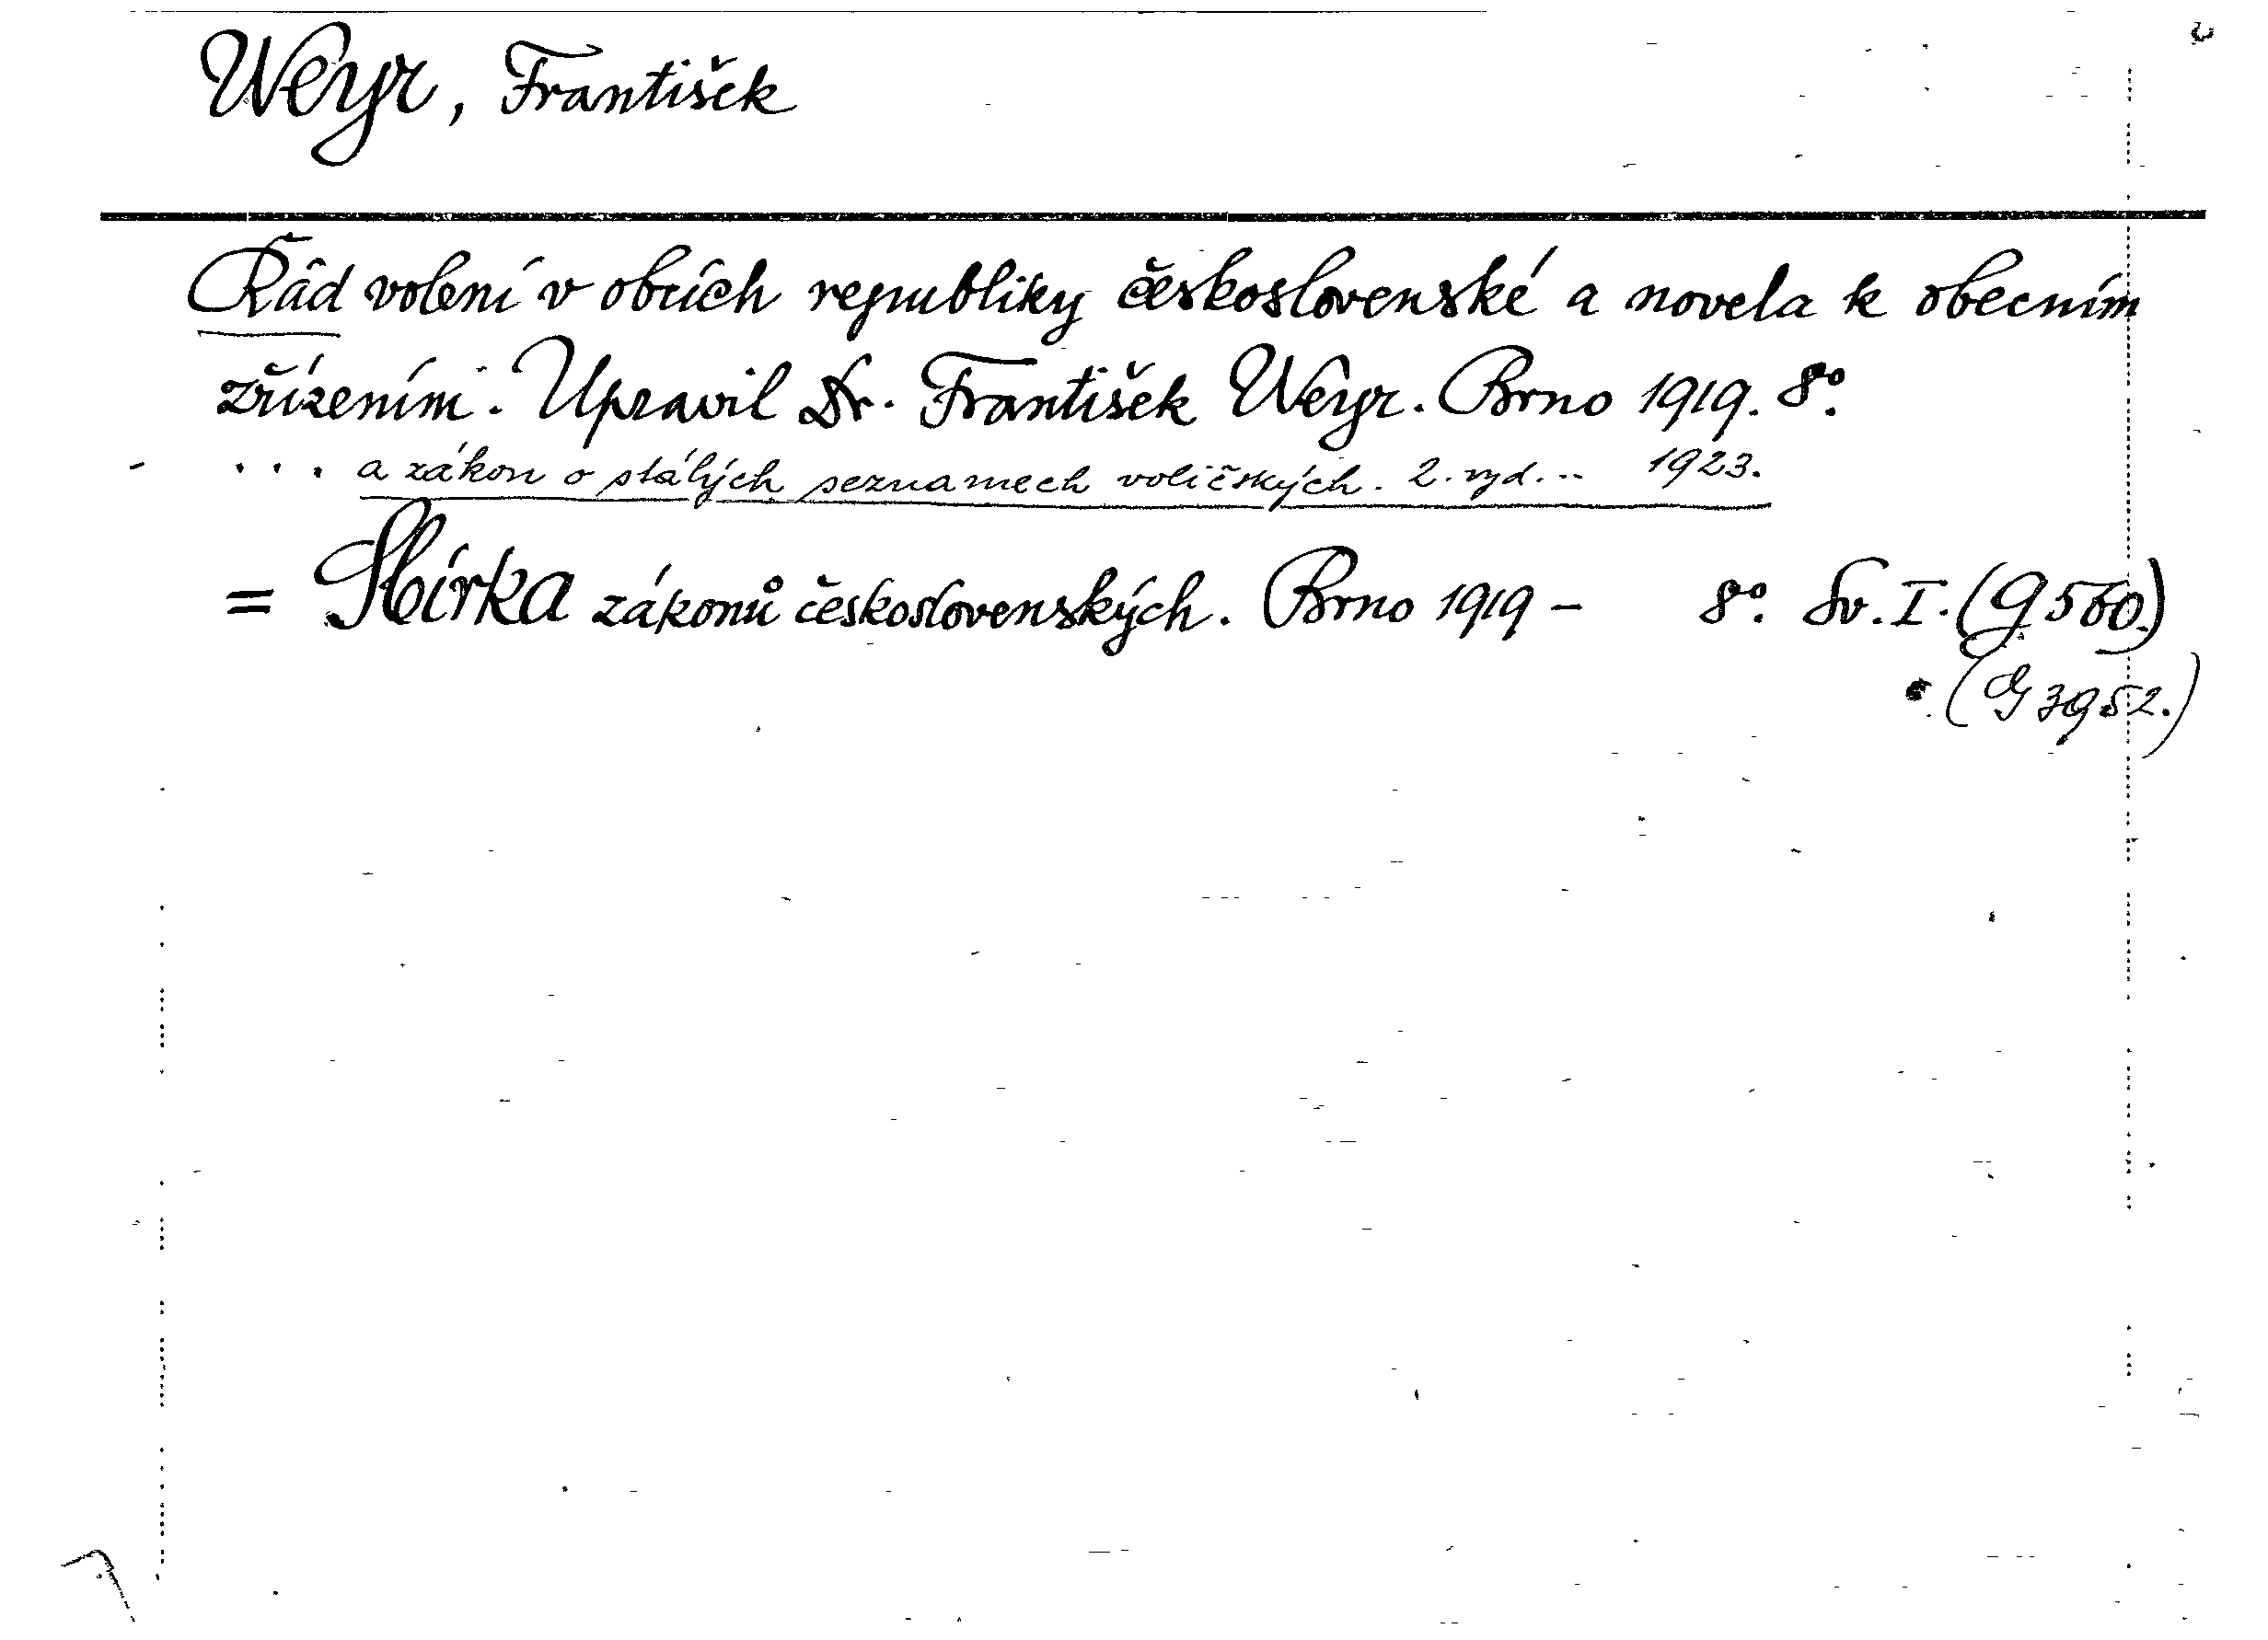 Weyr, František
Řád volení v obcích republiky československé a novela k obecním
zřízením. Upravil Dr. František Weyr. Brno 1919. 8°.
- ... a zákon o stálých seznamech voličských. 2. vyd... 1923.
= Sbírka zákonů československých. Brno 1919 - 8°. Sv. I. (G 560.)
(G 3952.)